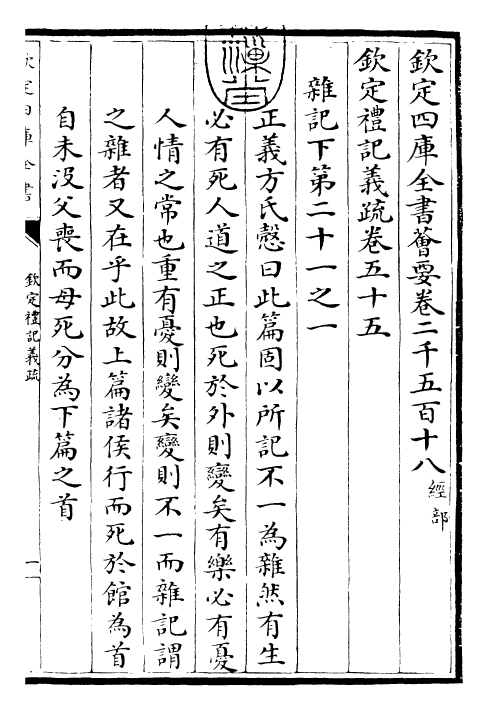 欽定四庫全書薈要卷二千五百十八經部
欽定禮記義疏卷五十五
雜記下第二十一之一
正義方氏慤曰此篇固以所記不一為雜然有生
必有死人道之正也死於外則變矣有樂必有憂
人情之常也重有憂則變矣變則不一而雜記謂
之雜者又在乎此故上篇諸侯行而死於館為首
自未沒父喪而母死分為下篇之首
欽定四庫全書
欽定禮記義疏
一